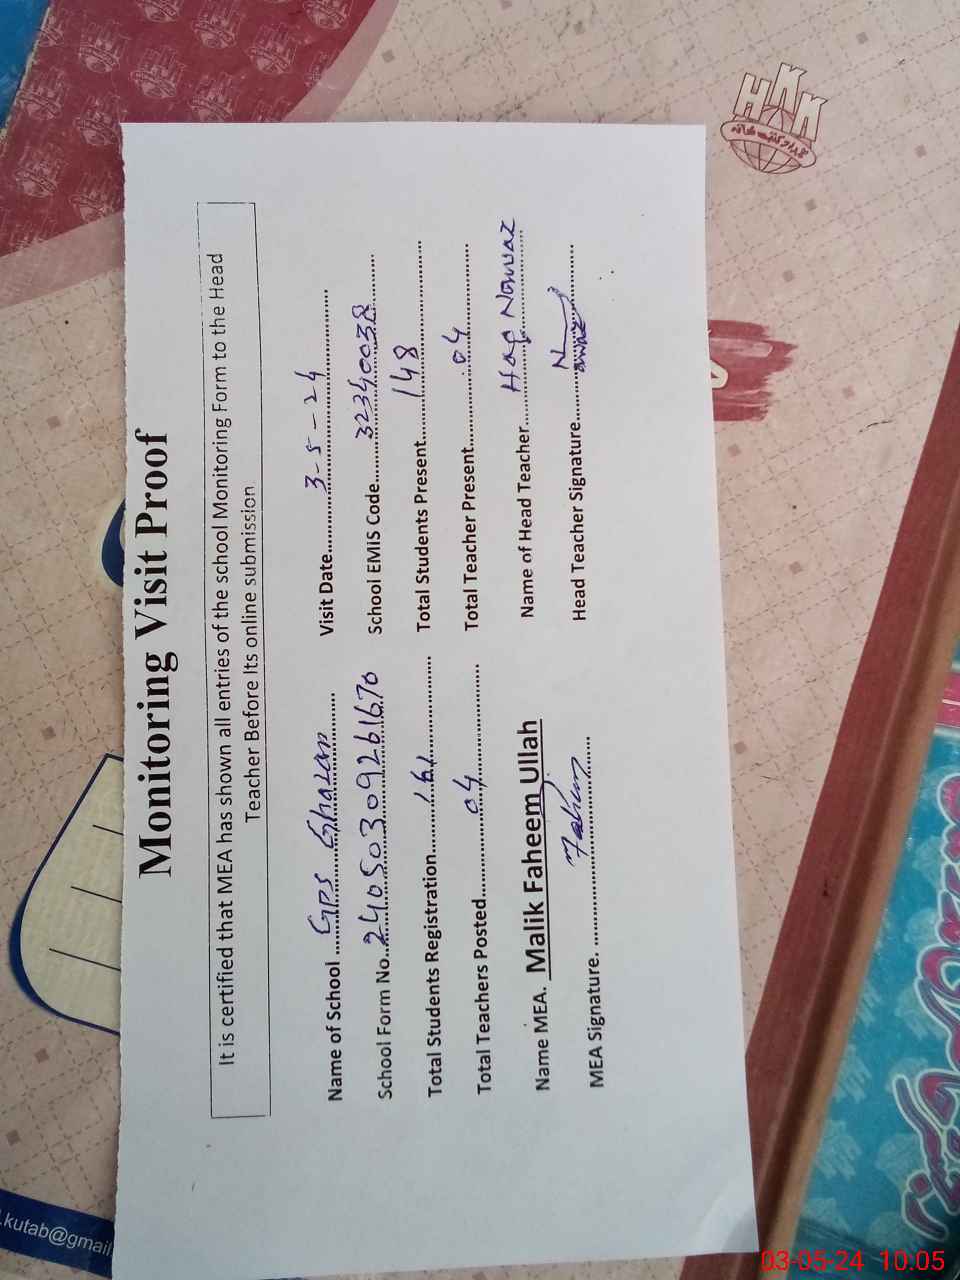 Monitoring Visit Proof
It is certified that MEA has shown all entries of the school Monitoring Form to the Head
Teacher Before Its online submission
Name of School ........ GPS Ghazan ........ Visit Date........ 3-5-24 ........
School Form No........ 24050309261670 School EMIS Code........ 32340038 ........
Total Students Registration........ 161 ........ Total Students Present........ 148 ........
Total Teachers Posted........ 04 ........ Total Teacher Present........ 04 ........
Name MEA. Malik Faheem Ullah Name of Head Teacher........ Haq Nawaz
MEA Signature. ........ Faheem ........ Head Teacher Signature........ Nawaz ........
HKK
.kutab@gmail
03-05-24 10.05